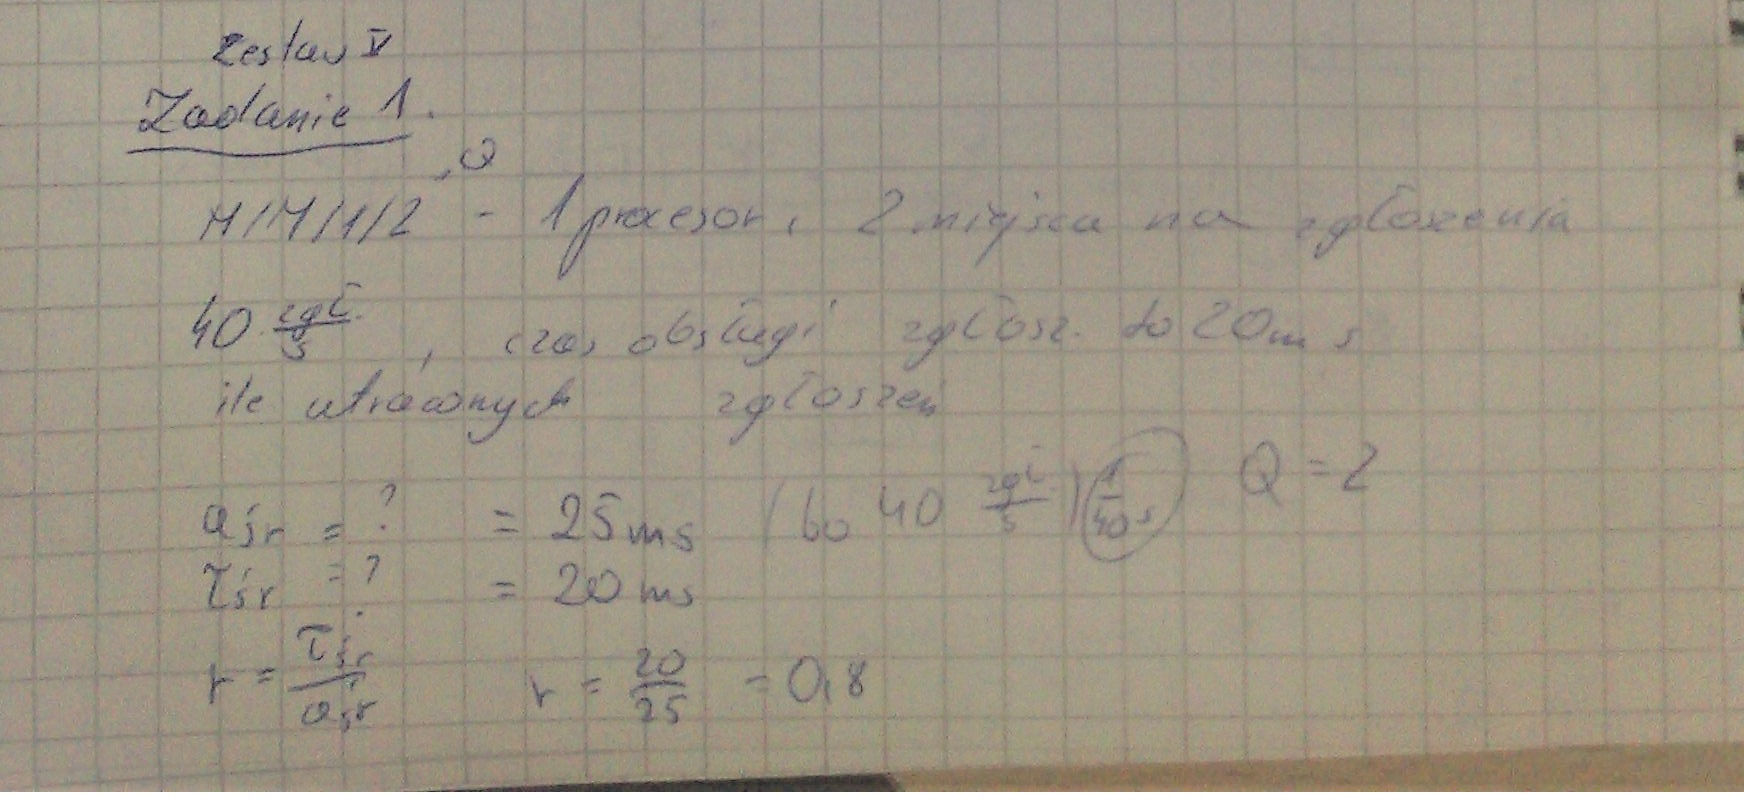 Zestaw V
Zadanie 1.
M/M/1/2 ,Q - 1 procesor, 2 miejsca na zgłoszenia
40 zgł./s, czas obsługi zgłosz. to 20ms
ile utraconych zgłoszeń
aśr = ? = 25ms (bo 40 zgł./s) 1/40 s Q = 2
τśr = ? = 20ms
r = τśr/aśr r = 20/25 = 0,8